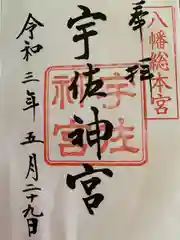 奉拝
八幡総本宮
宇佐神宮
宇佐
神宮
令和三年五月二十九日